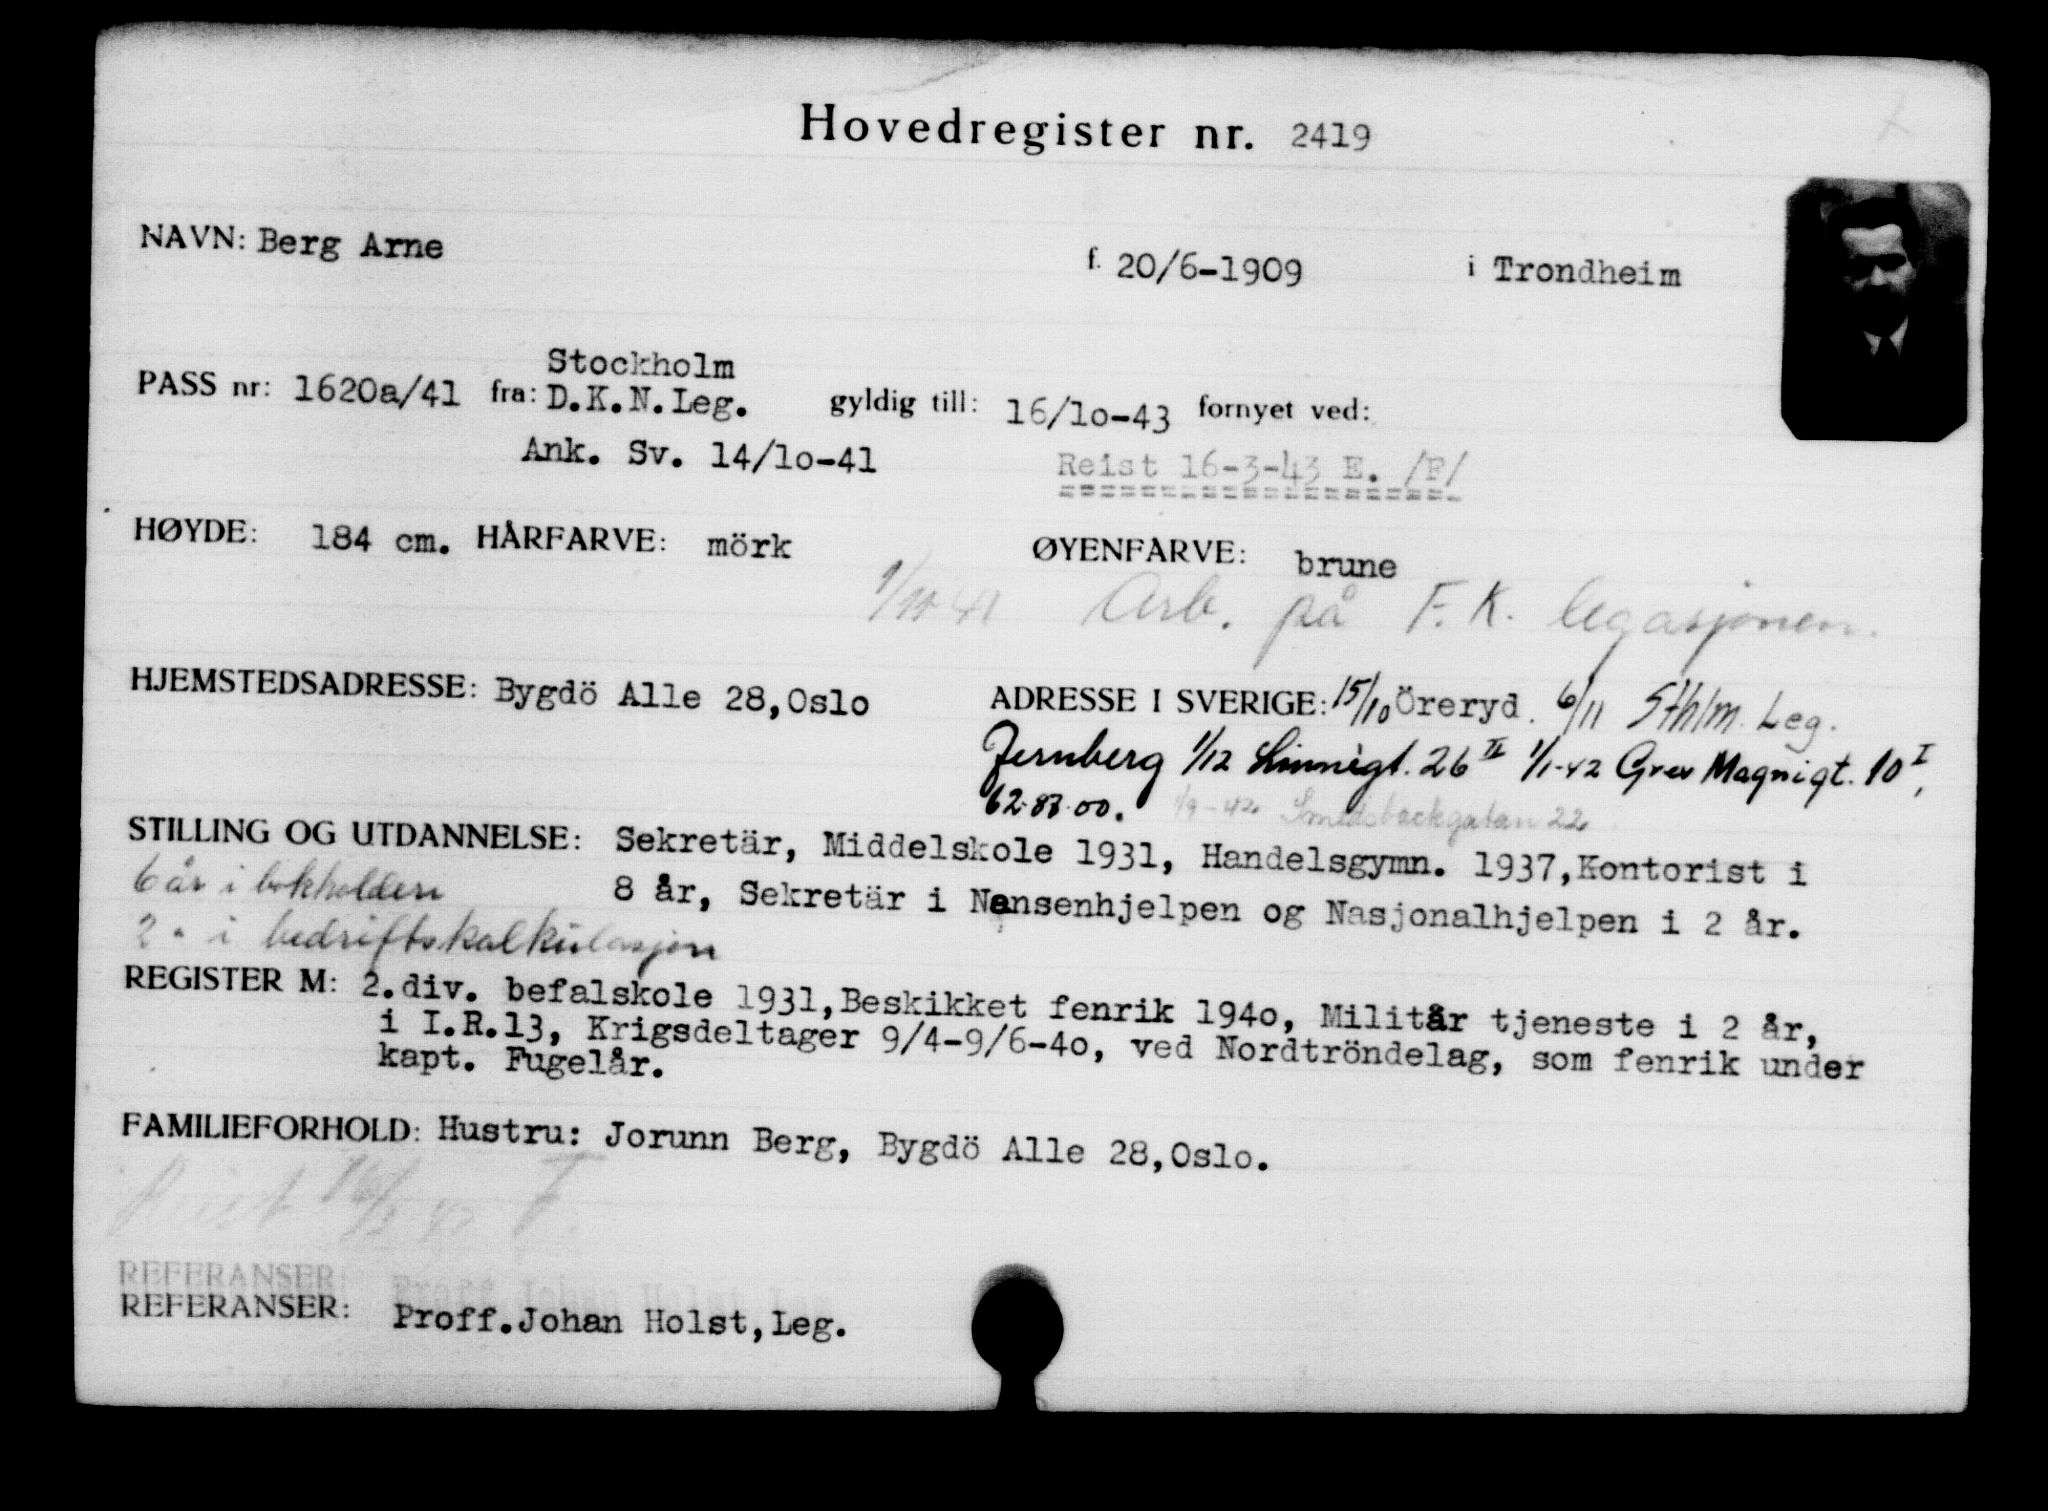 Hovedregister nr. 2419
NAVN: Berg Arne f. 20/6-1909 i Trondheim
Stockholm
PASS nr: 1620a/41 fra: D.K.N.Leg. gyldig till: 16/1o-43 fornyet ved:
Ank. Sv. 14/1o-41 Reist 16-3-43 E. /F/
HØYDE: 184 cm. HÅRFARVE: mörk ØYENFARVE: brune
Arb. på F.K. legasjonen.
HJEMSTEDSADRESSE: Bygdö Alle 28,Oslo ADRESSE I SVERIGE: 15/10 Öreryd. 6/11 Sthlm. Leg.
Jernberg 1/12 Linnégt. 26 II 1/1-42 Grev Magnigt. 10 I,
62.83.00. 1/9-42 Smedsbackgatan 22
STILLING OG UTDANNELSE: Sekretär, Middelskole 1931, Handelsgymn. 1937,Kontorist i
6 år i bokholderi 8 år, Sekretär i Nansenhjelpen og Nasjonalhjelpen i 2 år.
2 " i bedriftskalkulasjon
REGISTER M: 2.div. befalskole 1931,Beskikket fenrik 194o, Militär tjeneste i 2 år,
i I.R.13, Krigsdeltager 9/4-9/6-4o, ved Nordtröndelag, som fenrik under
kapt. Fugelår.
FAMILIEFORHOLD: Hustru: Jorunn Berg, Bygdö Alle 28,Oslo.
Reist 16/3 43 F.
REFERANSER:
REFERANSER: Proff.Johan Holst,Leg.